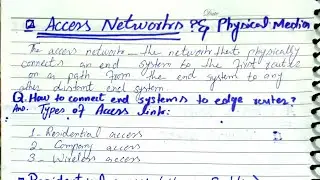 Access Networks? & Physical Media
The access network _ the network that physically
connects an end system to the first router
on a path from the end system to any
other distant end system
Q. How to connect end systems to edge router?
Ans: Types of Access link:
1. Residential access
2. Company access
3. Wireless access